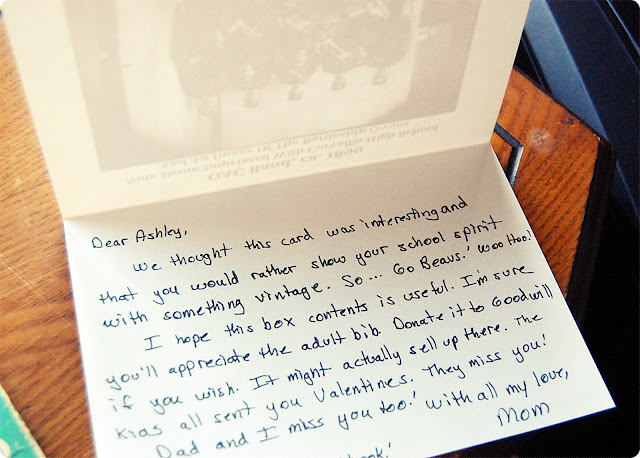 OAC Band, ca. 1899
Note Drum Imprinted With Corvallis High School
And An Image Of The Battleship Oregon
Dear Ashley,
We thought this card was interesting and
that you would rather show your school spirit
with something vintage. So... Go Beavs! Woo Hoo!
I hope this box contents is useful. I'm sure
you'll appreciate the adult bib. Donate it to Goodwill
if you wish. It might actually sell up there. The
kids all sent you Valentines. They miss you!
Dad and I miss you too! with all my love,
Mom